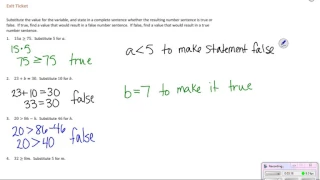 Exit Ticket
Substitute the value for the variable, and state in a complete sentence whether the resulting number sentence is true or
false. If true, find a value that would result in a false number sentence. If false, find a value that would result in a true
number sentence.
1. 15a ≥ 75. Substitute 5 for a.
15·5
75 ≥ 75 true
a<5 to make statement false
2. 23 + b = 30. Substitute 10 for b.
23+10 = 30 false
33 = 30
b=7 to make it true
3. 20 > 86 − h. Substitute 46 for h.
20 > 86-46 false
20 > 40
4. 32 ≥ 8m. Substitute 5 for m.